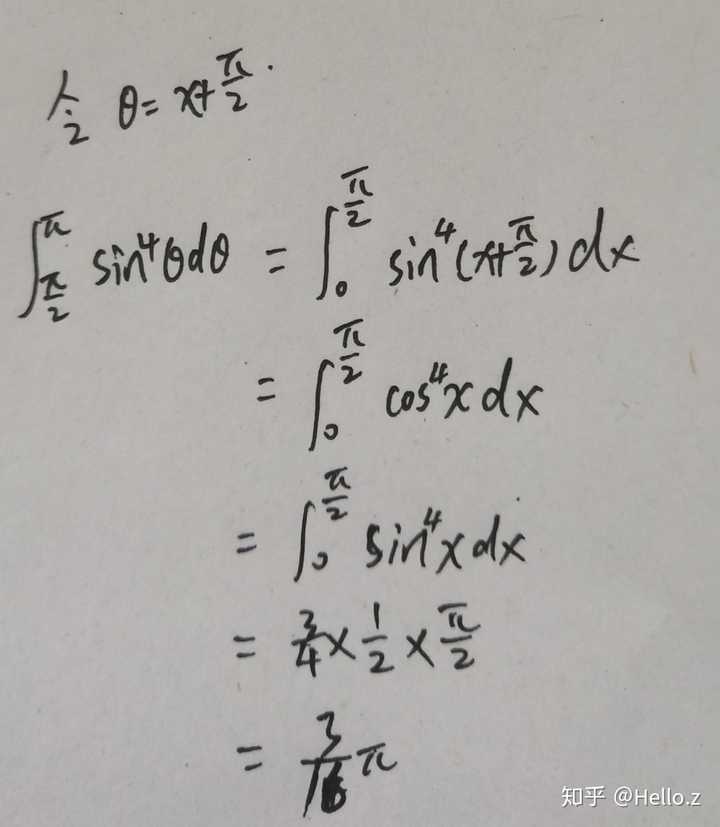 令 θ=x+π/2.
∫_{π/2}^{π} sin⁴θdθ = ∫_{0}^{π/2} sin⁴(x+π/2)dx
= ∫_{0}^{π/2} cos⁴x dx
= ∫_{0}^{π/2} sin⁴x dx
= 3/4 × 1/2 × π/2
= 3/16 π
知乎 @Hello.z